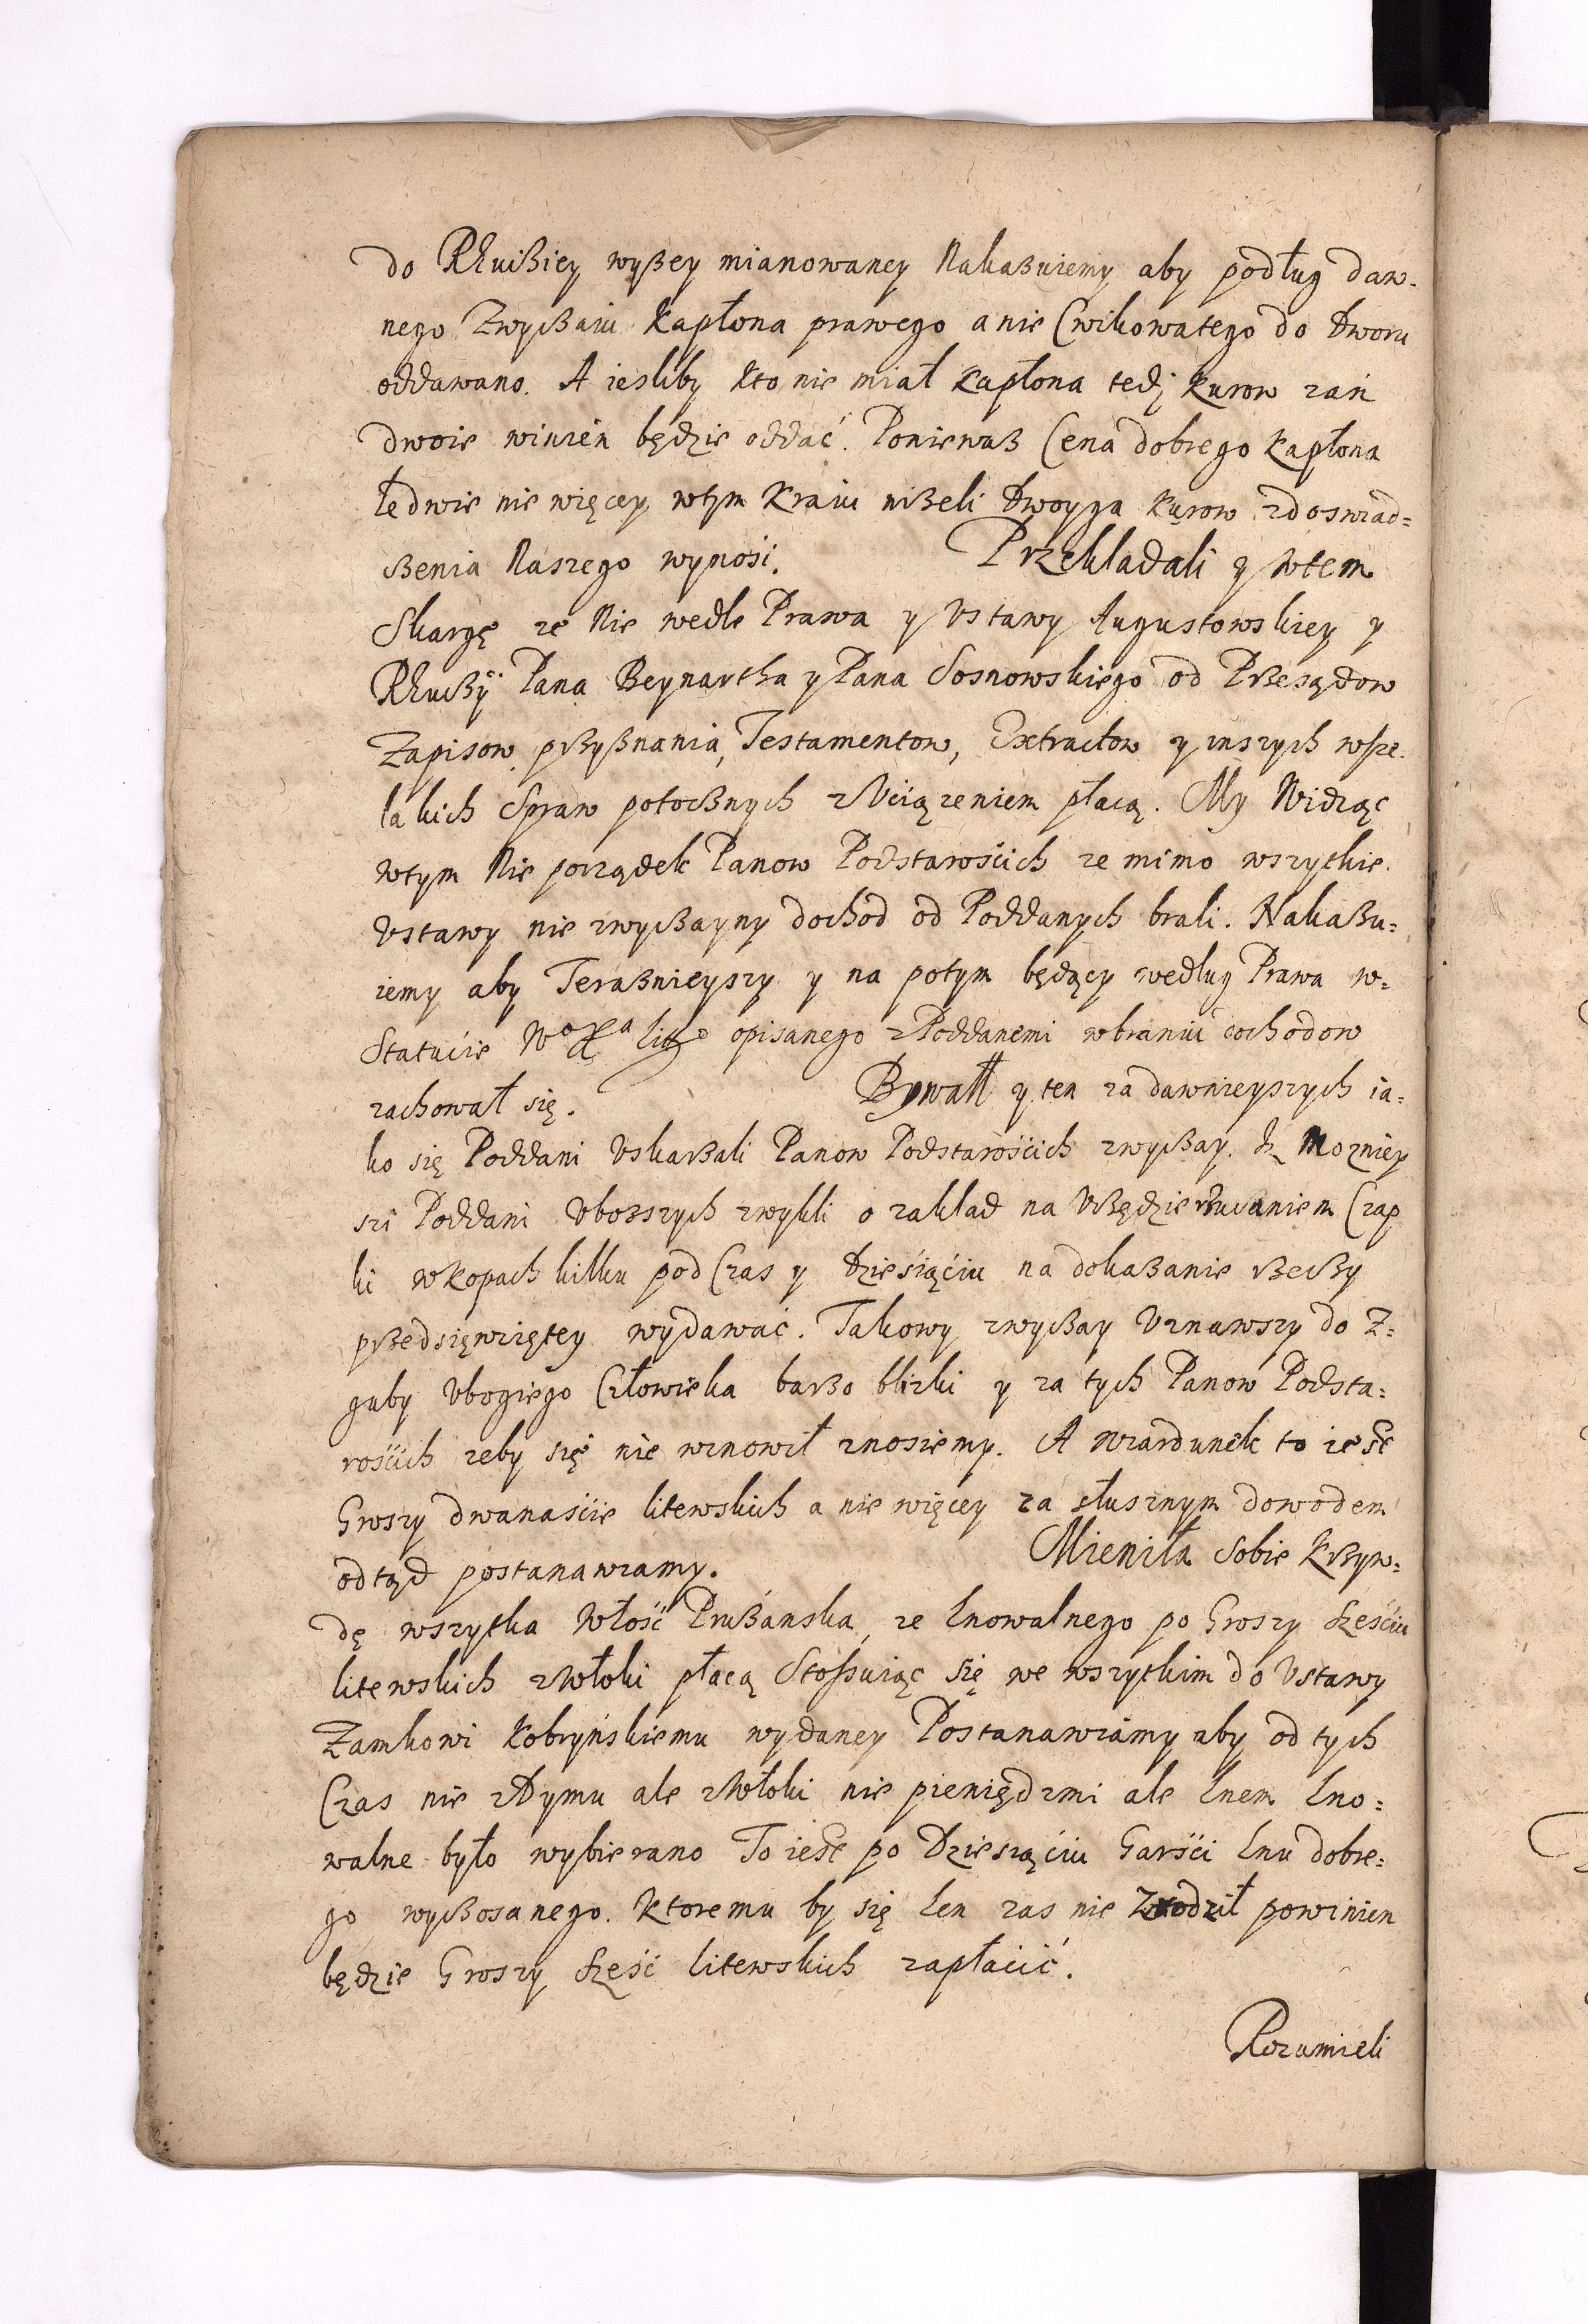 do Rkußiey wyßey mianowaney Nakaßuiemy aby podług daw-
nego Zwyckaiu Kapłona prawego a nie Cwikowatego do Dworu
oddawano. A iesliby kto nie miał Kapłona tedj Kurow zań
dwoie winien będzie oddać. Poniewaß Cena dobrego Kapłona
ledwie nie więcey wtym Kraiu nißeli Dwoyga Kurow zdoswiad=
ßenia Naszego wynosi. Przekładali y wtem
Skargę ze Nie wedle Prawa y Ustawy Augustowskiey y
Rkußÿ Pana Beynartha y Pana Sosnowskiego od Pßesądow
Zapisow pßyßnania, Testamentow, Extractow y inszych wsze-
lakich Spraw potoßnych zUciązeniem płacą. My Widząc
wtym Nie porządek Panow Podstarościch ze mimo wszytkie
Ustawy nie zwyßayny dochod od Poddanych brali. Nakaßu=
iemy aby Teraßnieyszy y na potym będący według Prawa w=
Statucie opisanego zPoddanemi wbraniu dochodow
zachował się. Bywałł y ten za dawnieyszych ia=
ko się Poddani Uskarßali Panow Podstarościch zwyßay. Moznieÿ
szi Poddani Ubozszych zwykli o zakład na Ußędzie Czap
ki w Kopach kilku pod Czas y dziesiąciu na dokaßanie ßeßy
pßedsięwziętey wydawać. Takowy zwyßay Uznawszy do Z=
guby Ubogiego Człowieka barßo blizki y za tych Panow Podsta=
rościch zeby się nie wznowił znosiemy. A Wiardunek to iest
Groszy dwanaście litewskich a nie więcey za słusznym dowodem
odtąd postanawiamy. Mieniła Sobie Kßyw=
dę wszytka Włość Prußanska, ze lnowalnego po Groszy sześciu
litewskich zWłoki płacą Stosuiąc Się we wszytkim do Ustawy
Zamkowi Kobryńskiemu wydaney Postanawiamy aby od tych
Czas nie zDymu ale zWłoki nie pieniędzmi ale lnem lno=
walne było wybierano To iest po Dziesiąciu Garści lnu dobre=
go wyßosanego. Ktoremu by się len zas nie Zrodził powinien
będzie Groszy sześć litewskich zapłacić.
Rozumieli